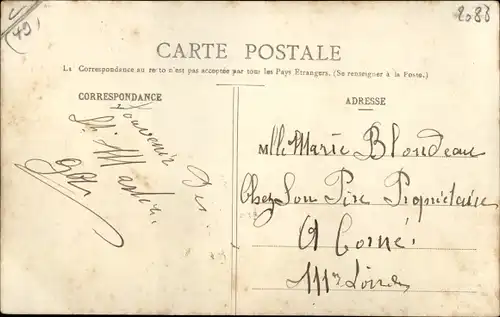 (49)
2083
CARTE POSTALE
La Correspondance au recto n'est pas acceptée par tous les Pays Etrangers. (Se renseigner à la Poste.)
CORRESPONDANCE
Souvenir
De
St Martin
ADRESSE
Mlle Marie Blondeau
Chez Son Père Propriétaire
A Corné